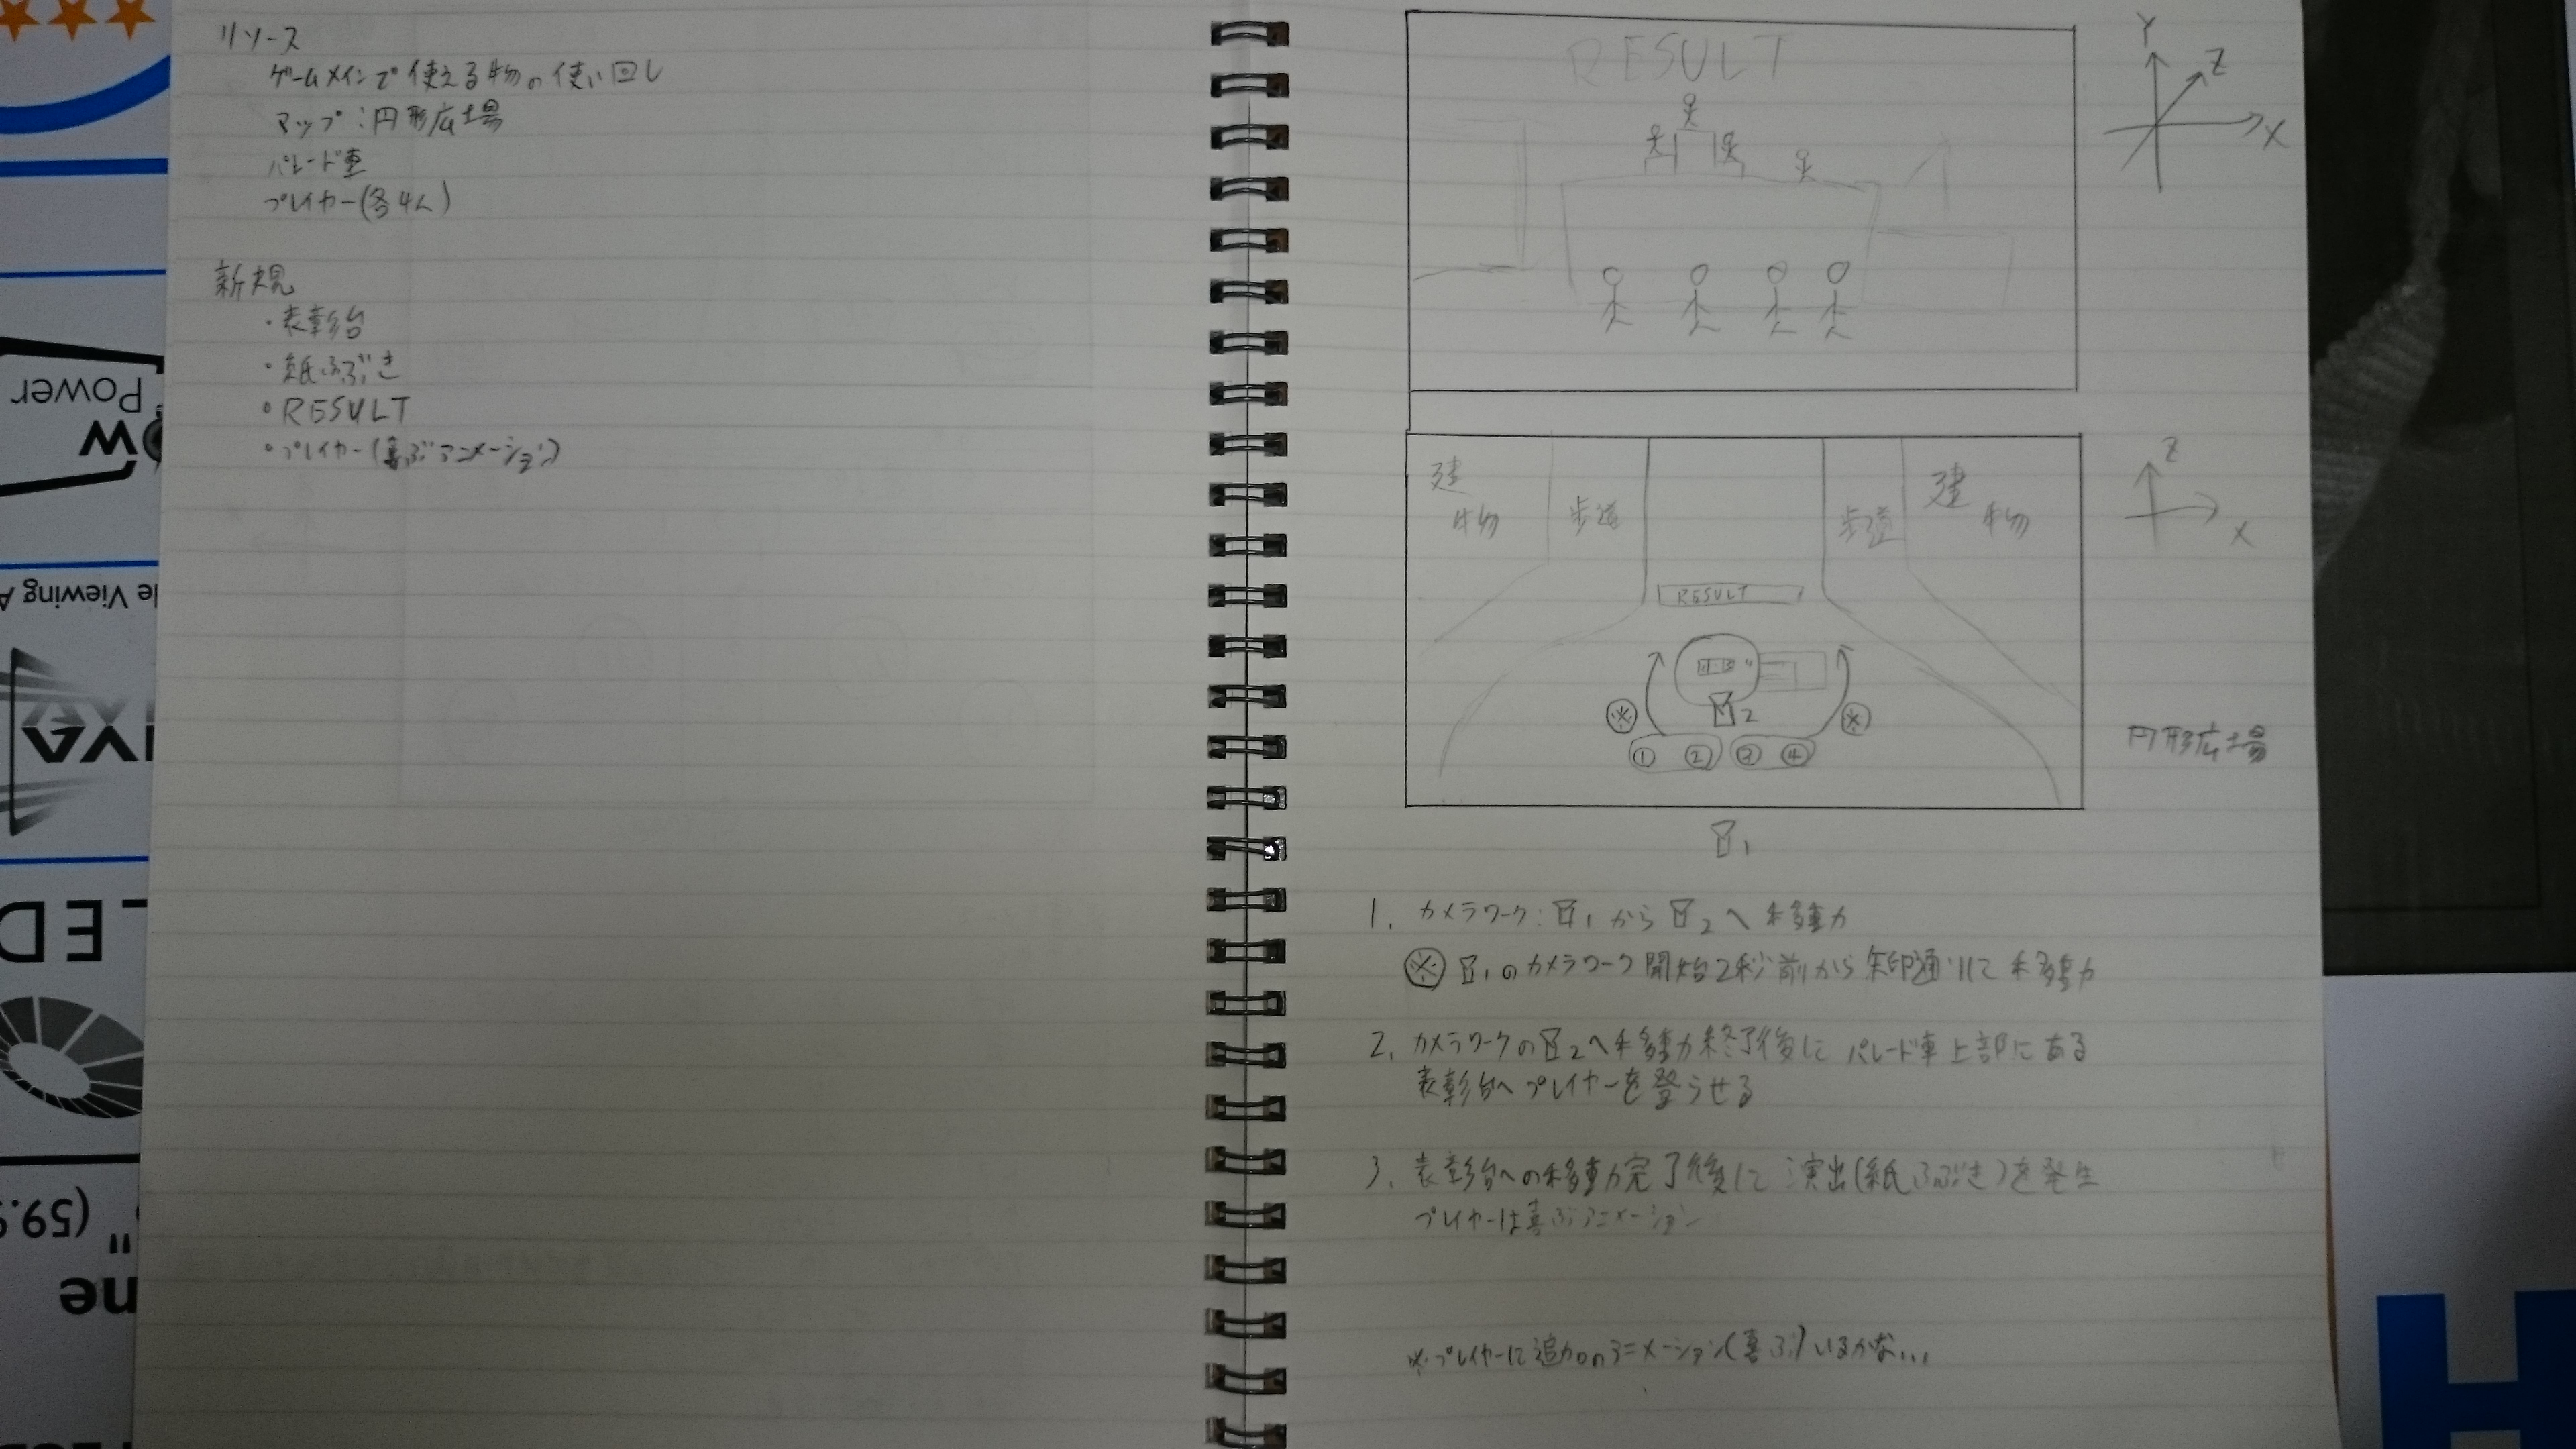 リソース
ゲームメインで使える物の使い回し
マップ：円形広場
パレード車
プレイヤー(各4人)
新規
・表彰台
・紙ふぶき
・RESULT
・プレイヤー(喜ぶアニメーション)
RESULT
Y
Z
X
建物
歩道
歩道
建物
Z
X
RESULT
※
2
※
① ② ③ ④
円形広場
1
1. カメラワーク：1から2へ移動
※ 1のカメラワーク開始2秒前から矢印通りに移動
2. カメラワークの2へ移動終了後に パレード車上部にある
表彰台へプレイヤーを登らせる
3. 表彰台への移動完了後に 演出(紙ふぶき)を発生
プレイヤーは喜ぶアニメーション
※プレイヤーに追加のアニメーション(喜ぶ)いるかな...
Power
OW
le Viewing A
IVA
LED
" (59.9
ne
H